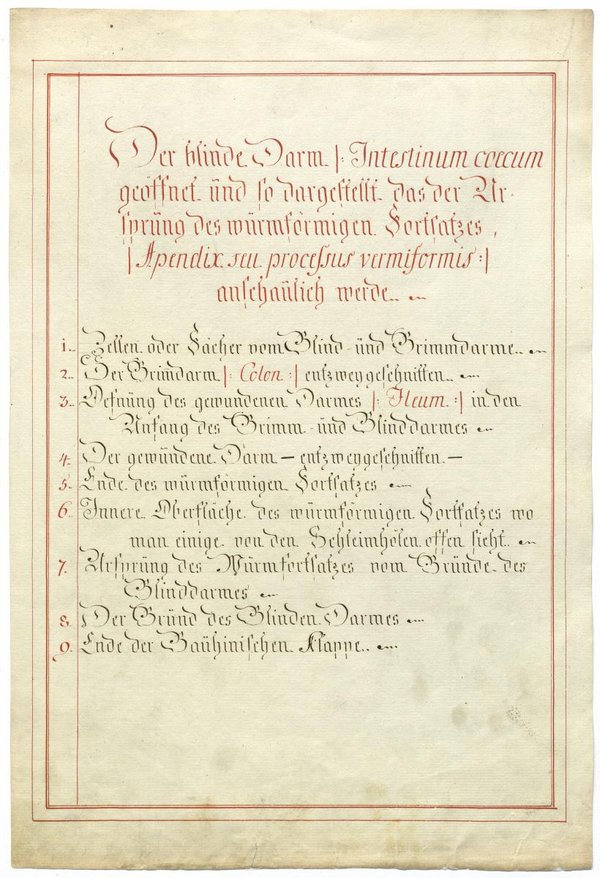 Der blinde Darm |: Intestinum coecum
geöffnet und so dargestellt das der Ur-
sprüng des würmförmigen Fortsatzes,
|: Apendix seu processus vermiformis :|
anschaülich werde.
1. Zellen oder Fächer vom Blind- und Grimmdarme.
2. Der Grimdarm |: Colon :| entzweygeschnitten.
3. Oefnüng des gewundenen Darmes |: Ileum :| in den
Anfang des Grimm- und Blinddarmes
4. Der gewündene Darm — entzweygeschnitten. —
5. Ende des würmförmigen Fortsatzes
6. Innere Oberfläche des würmförmigen Fortsatzes wo
man einige von den Schleimhölen offen sieht.
7. Ursprüng des Würmfortsatzes vom Gründe des
Blinddarmes
8. Der Gründ des Blinden Darmes
9. Ende der Baühinischen Klappe.